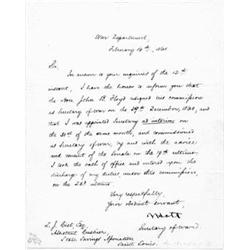 War Department,
February 14th, 1861
Sir,
In answer to your inquiries of the 12th
instant, I have the honor to inform you that
the Hon. John B. Floyd resigned his commission
as Secretary of War on the 29th December, 1860, and
that I was appointed Secretary ad interim on
the 31st of the same month, and commissioned
as Secretary of War, by and with the advice
and consent of the Senate on the
I took the oath of office and entered upon the
discharge of my duties under this commission
on the
Very respectfully,
Your obedient servant,
J Holt
Secretary of War
Esq
Assistant Cashier,
State Savings Association
Saint Louis,